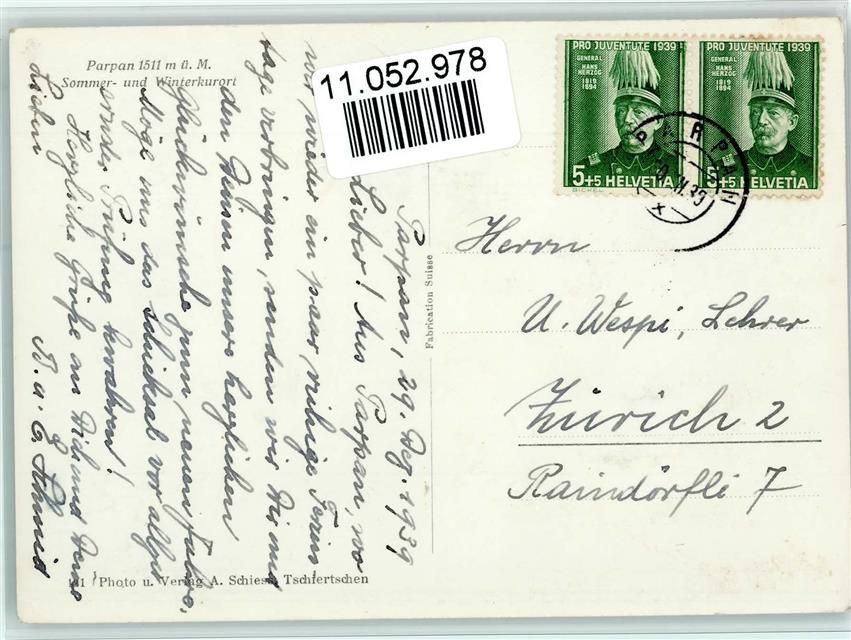 Parpan 1511 m ü. M.
Sommer- und Winterkurort
11.052.978
PRO JUVENTUTE 1939
GENERAL
HANS
HERZOG
1819
1894
5+5 HELVETIA
BICKEL
PRO JUVENTUTE 1939
GENERAL
HANS
HERZOG
1819
1894
5+5 HELVETIA
PARPAN
Parpan, 29. Dez. 1939
Lieber! Aus Parpan, wo
wir wieder ein paar ruhige Ferien
tage verbringen, senden wir Dir und
den Deinen unsere herzlichen
Glückwünsche zum neuen Jahre,
Möge uns das Schicksal vor allzu
Prüfung bewahren!
Herzliche Grüße an Dich und Deine
Lieben
R. u. E. Schmid
Fabrication Suisse
Herrn
U. Wespi, Lehrer
Zürich 2
Raindörfli 7
141 Photo u. Verlag A. Schiess, Tschiertschen